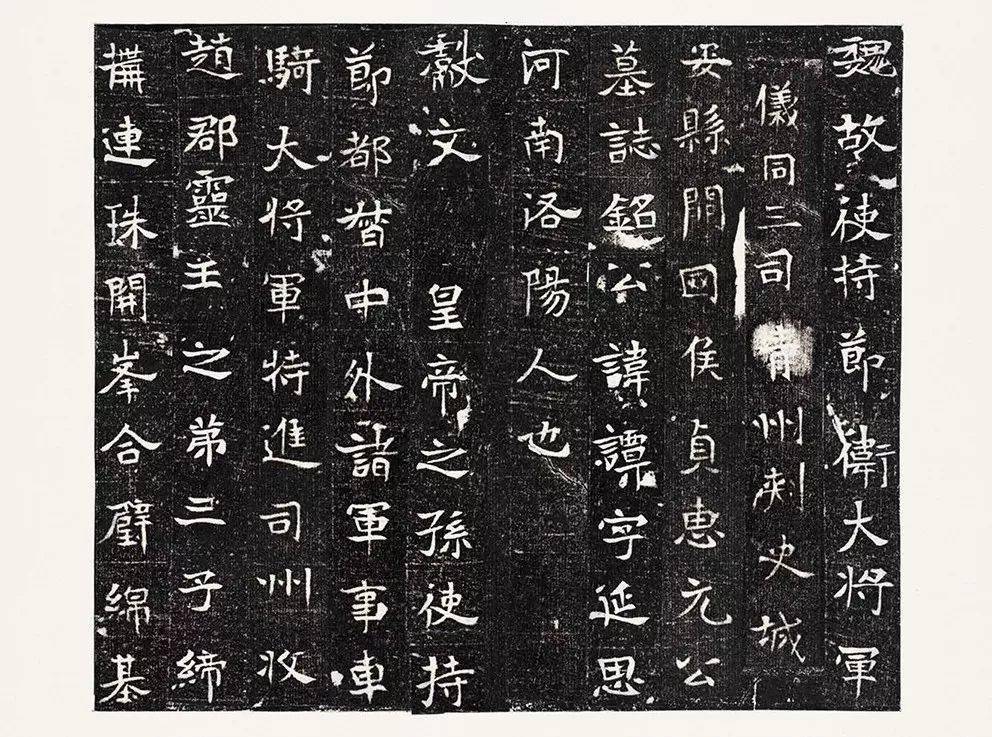 魏故使持節衛大将軍
儀同三司青州刺史城
安縣開國侯貞惠元公
墓誌銘公諱譚字延思
河南洛陽人也
獻文皇帝之孫使持
節都督中外諸軍事車
騎大将軍特進司州牧
趙郡靈王之弟三子締
搆連珠開峯合璧綿基